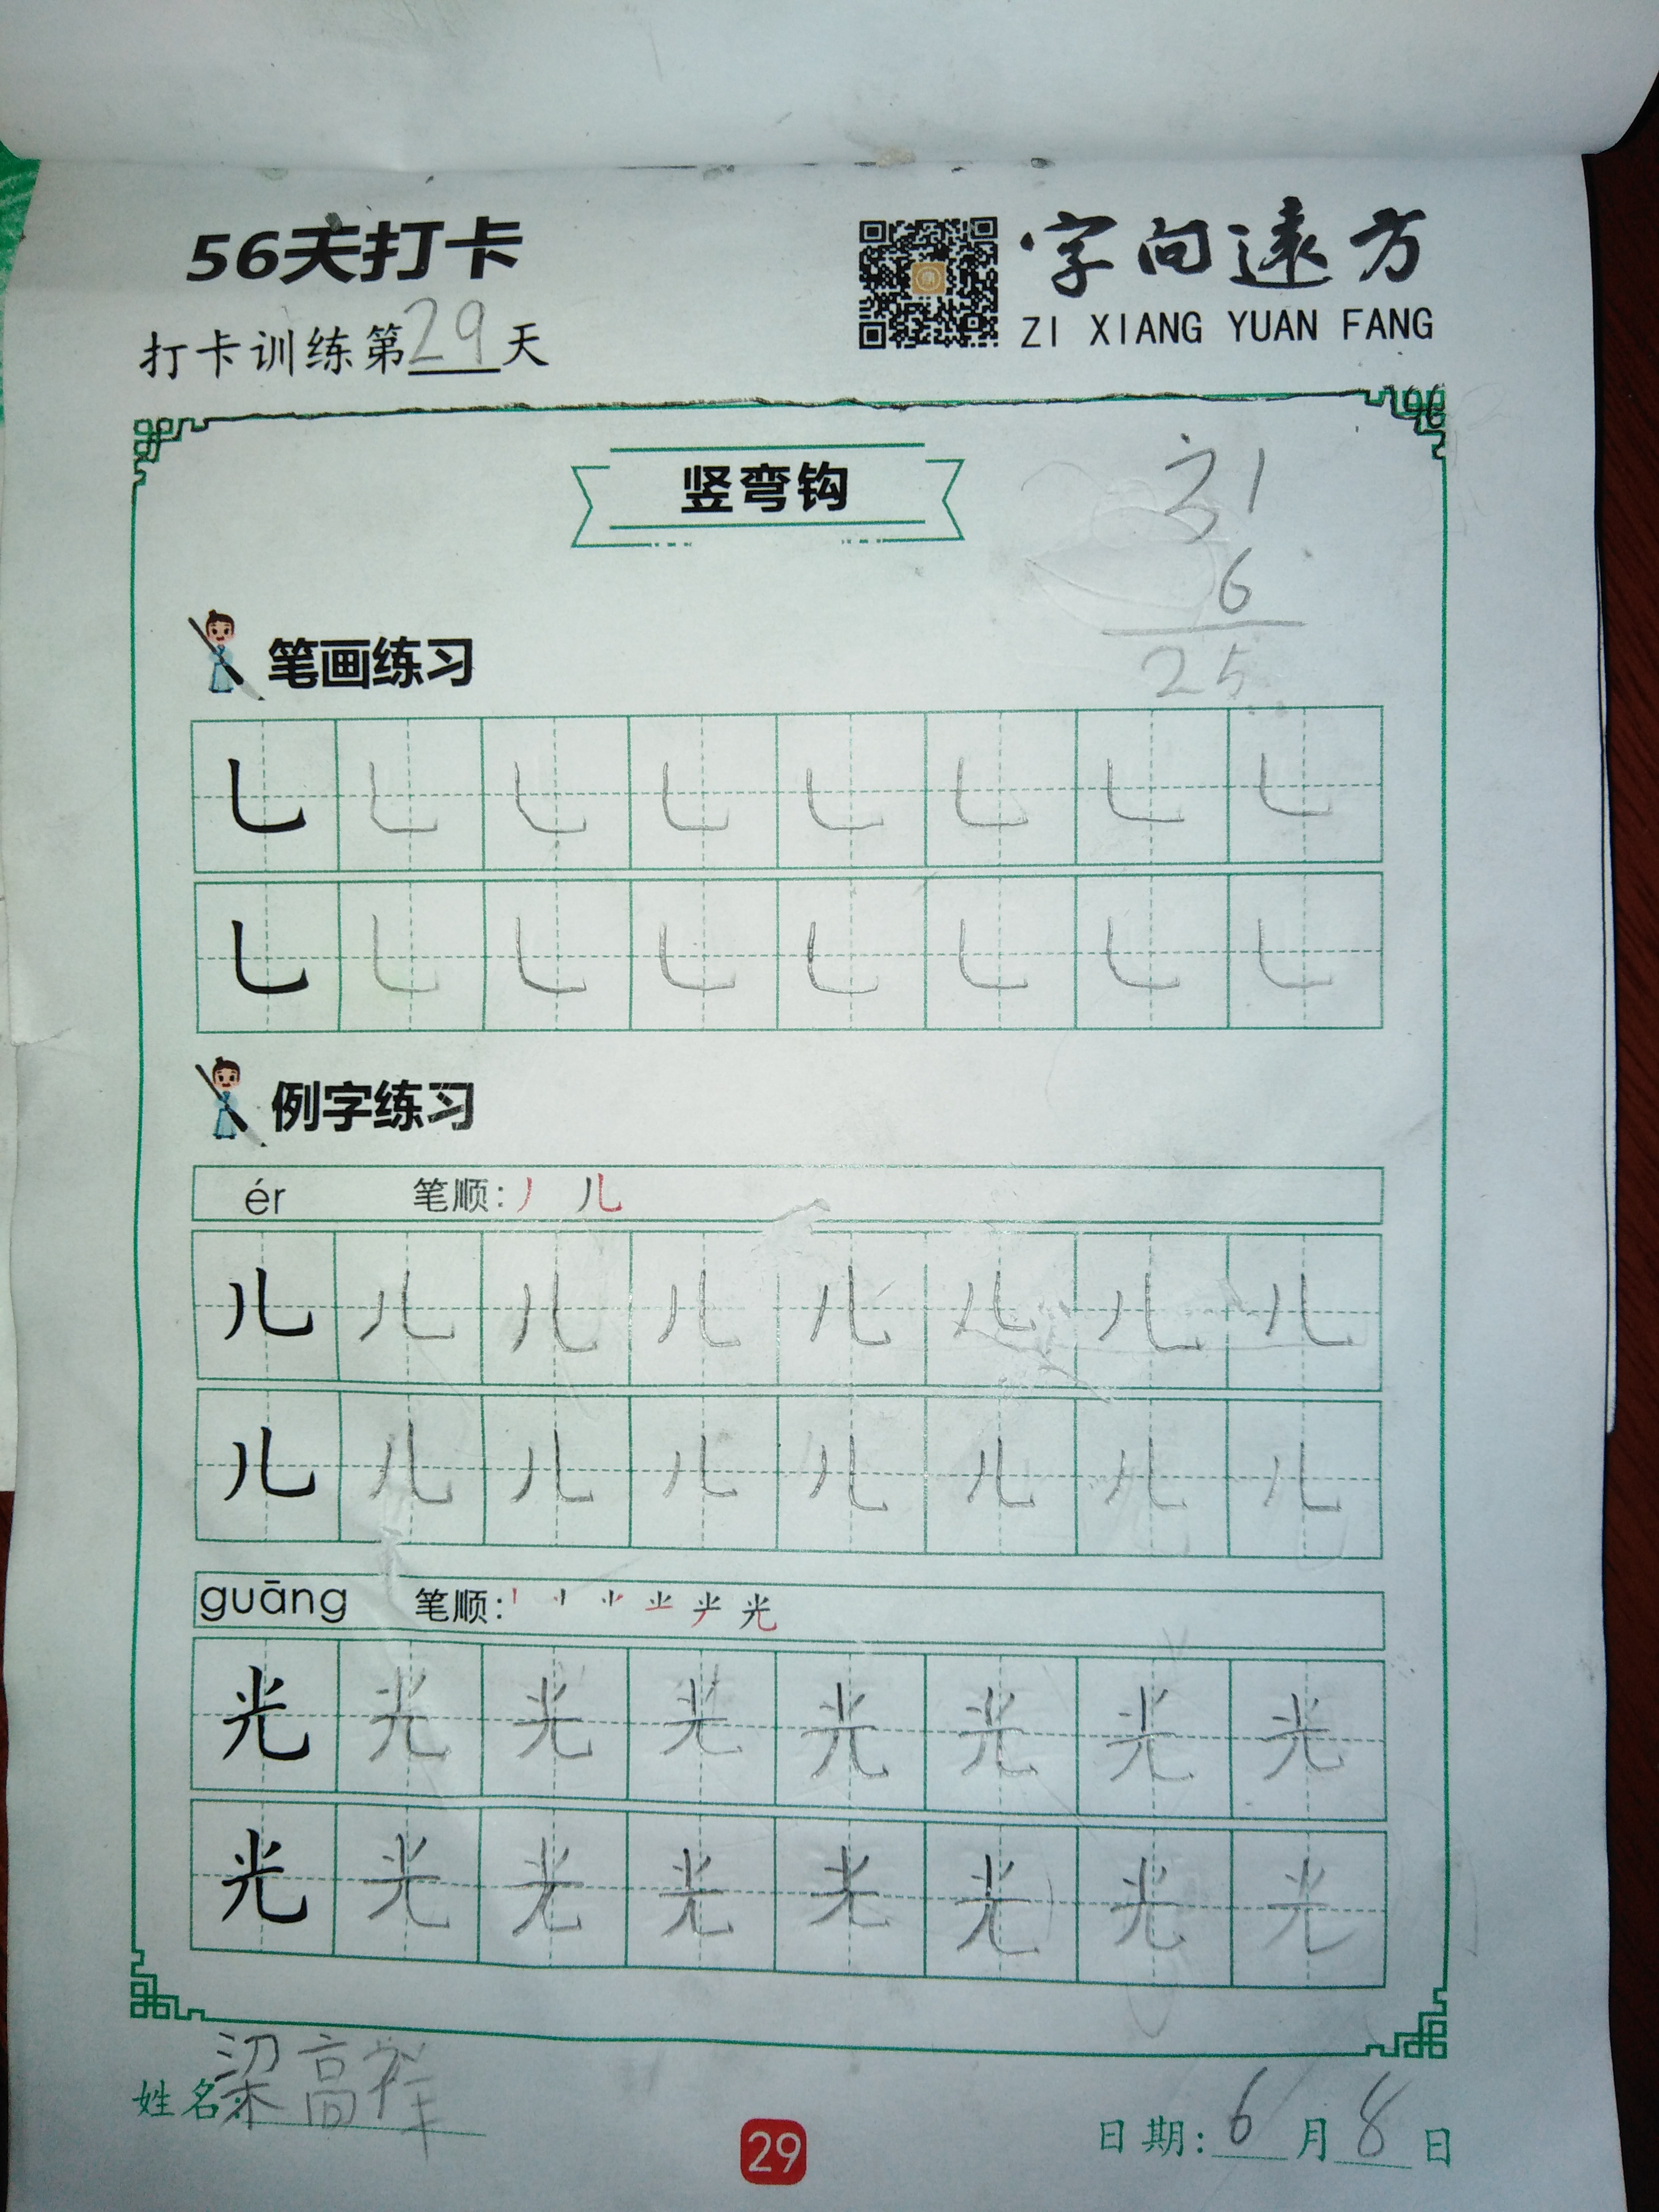 56天打卡
字向遠方
打卡训练第29天
ZI XIANG YUAN FANG
竖弯钩
31
6
25
笔画练习
乚 乚 乚 乚 乚 乚 乚 乚
乚 乚 乚 乚 乚 乚 乚 乚
例字练习
ér 笔顺: 丿 儿
儿 儿 儿 儿 儿 儿 儿 儿
儿 儿 儿 儿 儿 儿 儿 儿
guāng 笔顺: 光
光 光 光 光 光 光 光 光
光 光 光 光 光 光 光 光
姓名:梁高祥
29
日期:6月8日